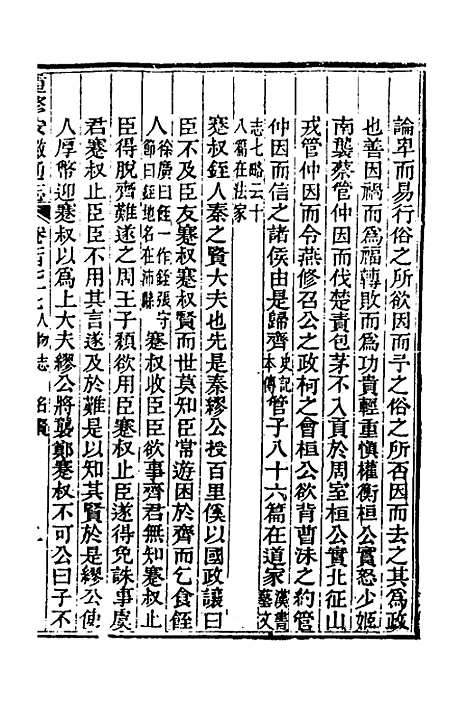 論卑而易行俗之所欲因而予之俗之所否因而去之其爲政
也善因禍而爲福轉敗而爲功貴輕重慎權衡桓公實怒少姬
南襲蔡管仲因而伐楚責包茅不入貢於周室桓公實北征山
戎管仲因而令燕修召公之政柯之會桓公欲背曹沫之約管
仲因而信之諸侯由是歸齊史記本傳管子八十六篇在道家漢書藝文
志七略云十八篇在法家
蹇叔銍人秦之賢大夫也先是秦繆公授百里傒以國政讓曰
臣不及臣友蹇叔蹇叔賢而世莫知臣常遊困於齊而乞食銍
人徐廣曰銍一作銍張守節曰銍地名在沛縣蹇叔收臣臣欲事齊君無知蹇叔止
臣臣得脫齊難遂之周王子頹欲用臣蹇叔止臣遂得免誅事虞
君蹇叔止臣臣不用其言遂及於難是以知其賢於是繆公使
人厚幣迎蹇叔以爲上大夫繆公將襲鄭蹇叔不可公曰子不
重修安徽通志 卷百七十七 人物志 名賢